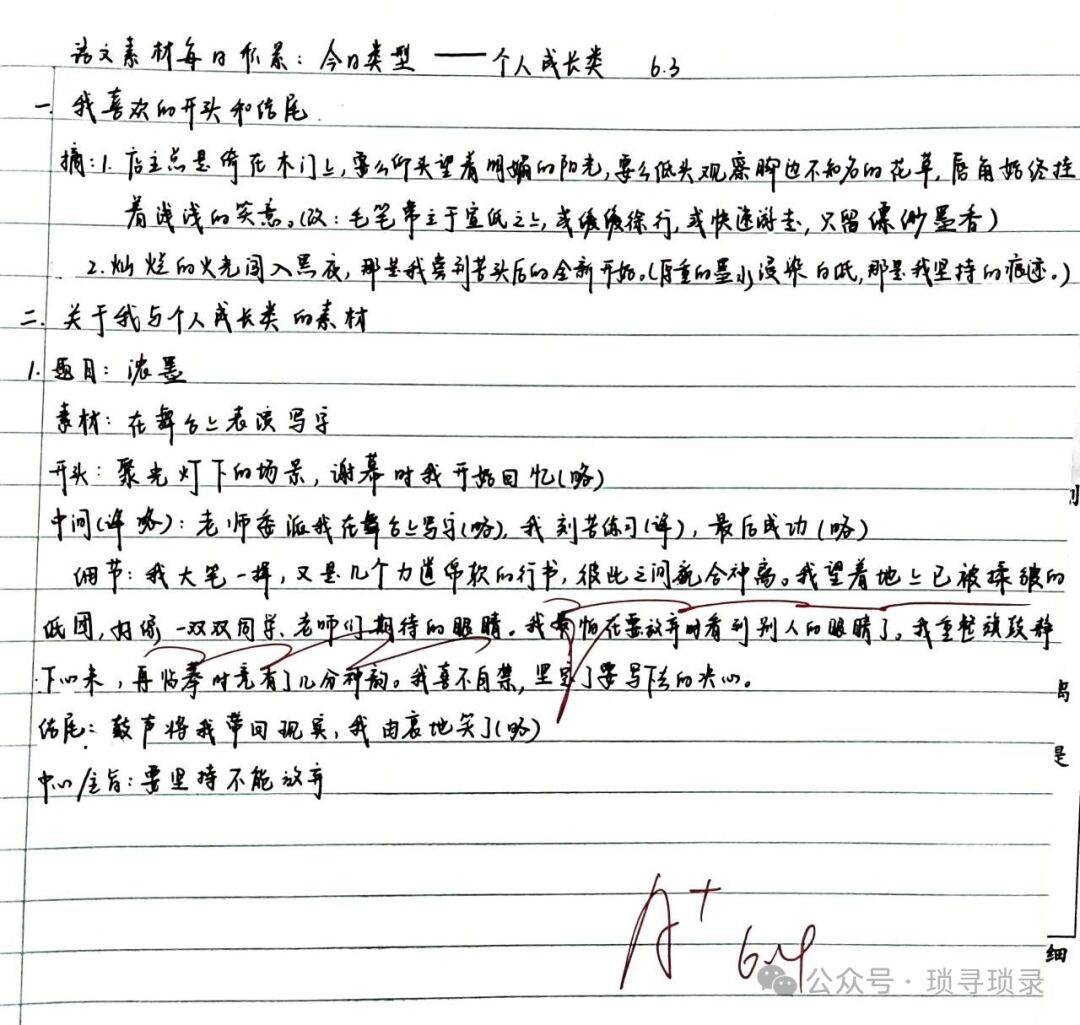 语文素材每日积累：今日类型 —— 个人成长类 6.3
一. 我喜欢的开头和结尾
摘：1. 店主总是倚在木门上，要么仰头望着明媚的阳光，要么低头观察脚边不知名的花草，唇角始终挂
着浅浅的笑意。（改：毛笔常立于宣纸之上，或缓缓徐行，或快速游走，只留缥缈墨香）
2. 灿烂的火光闯入黑夜，那是我尝到苦头后的全新开始。（厚重的墨水浸染白纸，那是我坚持的痕迹。）
二. 关于我与个人成长类的素材
1. 题目：浓墨
素材：在舞台上表演写字
开头：聚光灯下的场景，谢幕时我开始回忆（略）
中间（详略）：老师委派我在舞台上写字（略），我刻苦练习（详），最后成功（略）
细节：我大笔一挥，又是几个力道绵软的行书，彼此之间貌合神离。我望着地上已被揉皱的
纸团，好像一双双同学、老师们期待的眼睛。我害怕在要放弃时看到别人的眼睛了。我重整旗鼓静
下心来，再临摹时竟有了几分神韵。我喜不自禁，坚定了要写下去的决心。
结尾：鼓声将我带回现实，我由衷地笑了（略）
中心/主旨：要坚持不能放弃
A+
6.4
岛
是
细
公众号·琐寻琐录